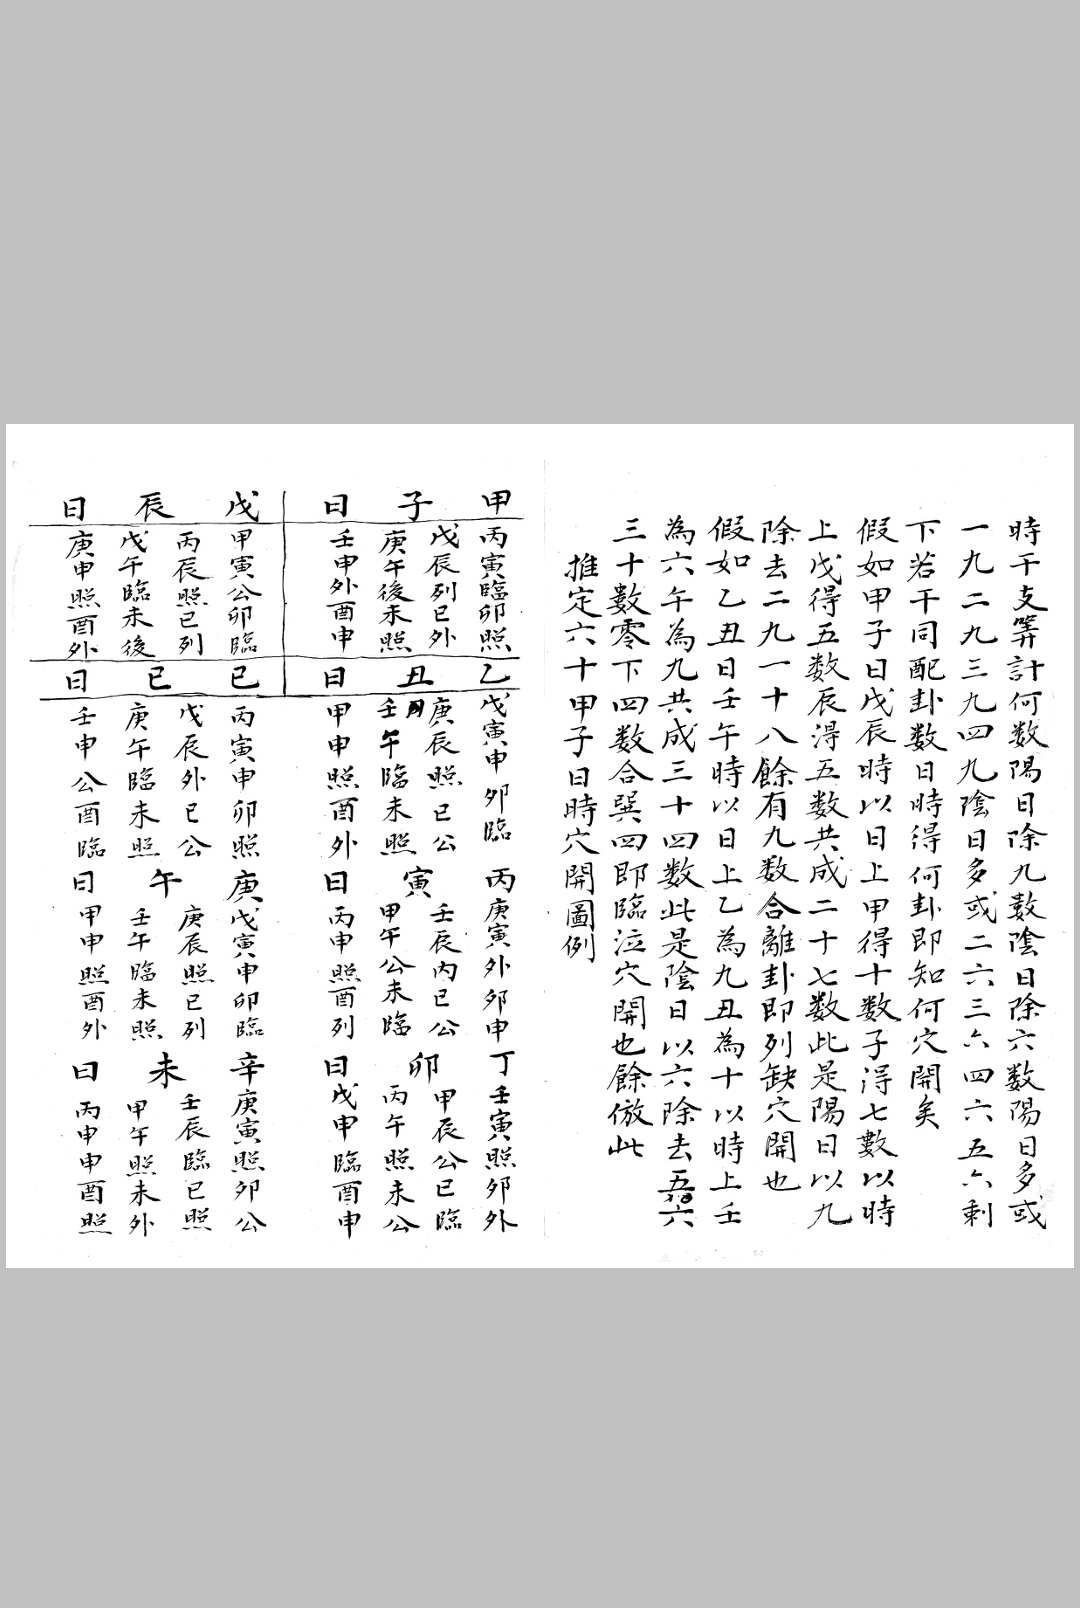 時干支筭計何数陽日除九數陰日除六数陽日多或
一九二九三九四九陰日多或二六三六四六五六剩
下若干同配卦数日時得何卦即知何穴開矣
假如甲子日戊辰時以日上甲得十数子得七數以時
上戊得五数辰得五数共成二十七数此是陽日以九
除去二九一十八餘有九数合離卦即列缺穴開也
假如乙丑日壬午時以日上乙為九丑為十以時上壬
為六午為九共成三十四数此是陰日以六除去五六
三十數零下四数合巽四即臨泣穴開也餘倣此
推定六十甲子日時穴開圖例
甲子日
丙寅臨卯照
戊辰列巳外
庚午後未照
壬申外酉申
乙丑日
戊寅申卯臨
庚辰照巳公
壬午臨未照
甲申照酉外
丙寅日
庚寅外卯申
壬辰内巳公
甲午公未臨
丙申照酉列
丁卯日
壬寅照卯外
甲辰公巳臨
丙午照未公
戊申臨酉申
戊辰日
甲寅公卯臨
丙辰照巳列
戊午臨未後
庚申照酉外
己巳日
丙寅申卯照
戊辰外巳公
庚午臨未照
壬申公酉臨
庚午日
戊寅申卯臨
庚辰照巳列
壬午臨未照
甲申照酉外
辛未日
庚寅照卯公
壬辰臨巳照
甲午照未外
丙申申酉照